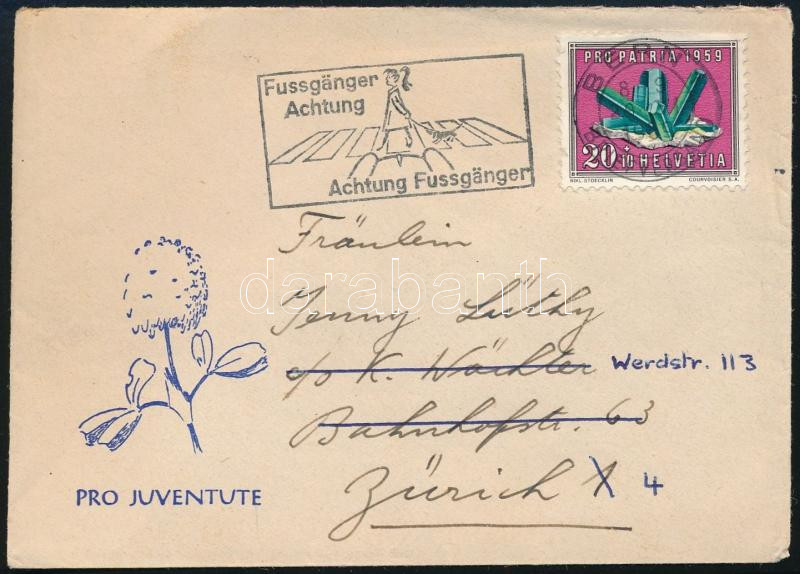 Fussgänger
Achtung
Achtung Fussgänger
PRO PATRIA 1959
BERN
20+10 HELVETIA
NIKL. STOECKLIN
COURVOISIER S.A.
darabanth
Fräulein
Jenny Lüthy
c/o K. Wächter Werdstr. 113
Bahnhofstr. 63
Zürich 1 4
PRO JUVENTUTE